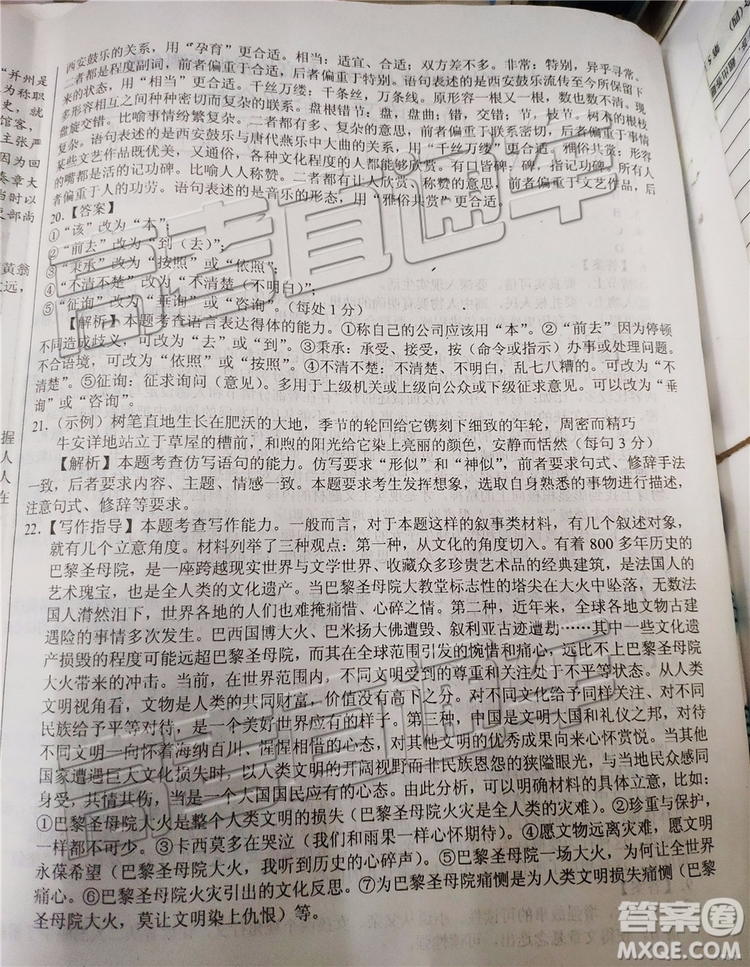 西安鼓乐的关系，用“孕育”更合适。相当：适宜、合适；双方差不多。非常：特别，异乎寻常。
二者都是程度副词，前者偏重于合适，后者偏重于特别。语句表述的是西安鼓乐流传至今所保留下
来的状态，用“相当”更合适。千丝万缕：千条丝，万条线。原形容一根又一根，数也数不清。现
多形容相互之间种种密切而复杂的联系。盘根错节：盘，盘曲；错，交错；节，枝节。树木的根枝
盘旋交错。比喻事情纷繁复杂。二者都有多、复杂的意思，前者偏重于联系密切，后者偏重于事情
复杂。语句表述的是西安鼓乐与唐代燕乐中大曲的关系，用“千丝万缕”更合适。雅俗共赏：形容
某些文艺作品既优美，又通俗，各种文化程度的人都能够欣赏。有口皆碑：碑，指记功碑。所有人
的嘴都是活的记功碑。比喻人人称赞。二者都有让人欣赏、称赞的意思，前者偏重于文艺作品，后
者偏重于人的功劳。语句表述的是音乐的形态，用“雅俗共赏”更合适。
20.【答案】
①“该”改为“本”；
②“前去”改为“到（去）”；
③“秉承”改为“按照”或“依照”；
④“不清不楚”改为“不清楚（不明白）”；
⑤“征询”改为“垂询”或“咨询”。（每处 1 分）
【解析】本题考查语言表达得体的能力。①称自己的公司应该用“本”。②“前去”因为停顿
不同造成歧义，可改为“去”或“到”。③秉承：承受，接受，按（命令或指示）办事或处理问题。
不合语境，可改为“依照”或“按照”。④不清不楚：不清楚、不明白，乱七八糟的。可改为“不
清楚”。⑤征询：征求询问（意见）。多用于上级机关或上级向公众或下级征求意见。可以改为“垂
询”或“咨询”。
21.（示例）树笔直地生长在肥沃的大地，季节的轮回给它镌刻下细致的年轮，周密而精巧
牛安详地站立于草屋的槽前，和煦的阳光给它染上亮丽的颜色，安静而恬然（每句 3 分）
【解析】本题考查仿写语句的能力。仿写要求“形似”和“神似”，前者要求句式、修辞手法
一致，后者要求内容、主题、情感一致。本题要求考生发挥想象，选取自身熟悉的事物进行描述，
注意句式、修辞等要求。
22.【写作指导】本题考查写作能力。一般而言，对于本题这样的叙事类材料，有几个叙述对象，
就有几个立意角度。材料列举了三种观点：第一种，从文化的角度切入。有着 800 多年历史的
巴黎圣母院，是一座跨越现实世界与文学世界、收藏众多珍贵艺术品的经典建筑，是法国人的
艺术瑰宝，也是全人类的文化遗产。当巴黎圣母院大教堂标志性的塔尖在大火中坠落，无数法
国人潸然泪下，世界各地的人们也难掩痛惜、心碎之情。第二种，近年来，全球各地文物古建
遇险的事情多次发生。巴西国博大火、巴米扬大佛遭毁、叙利亚古迹遭劫……其中一些文化遗
产损毁的程度可能远超巴黎圣母院，而其在全球范围引发的惋惜和痛心，远比不上巴黎圣母院
大火带来的冲击。当前，在世界范围内，不同文明受到的尊重和关注处于不平等状态。从人类
文明视角看，文物是人类的共同财富，文化价值没有高下之分。对不同文化给予同样关注，对不同
民族给予平等对待，是一个美好世界应有的样子。第三种，中国是文明大国和礼仪之邦，对待
不同文明一向怀着海纳百川、惺惺相惜的心态，对其他文明的优秀成果向来会欣赏。当其他
国家遭遇巨大文化损失时，以人类文明的开阔视野而非民族恩怨的狭隘眼光，与当地民众感同
身受，共情共伤，当是一个大国国民应有的心态。由此分析，可以明确材料的具体立意，比如：
①巴黎圣母院火灾是整个人类文明的损失（巴黎圣母院火灾是全人类的灾难）。②珍重与保护，
一样都不能少。③卡西莫多在哭泣（我们和雨果一样心怀期待）。④愿文物远离灾难，愿文明
永葆希望（巴黎圣母院大火，我听到了历史的心碎声）。⑤巴黎圣母院一场大火，为何让全世界
痛心。⑥巴黎圣母院火灾引出的文化反思。⑦为巴黎圣母院痛恻是为人类文明损失痛恻（巴黎
圣母院大火，莫让文明染上仇恨）等。
高考直通车
高考直通车
答案圈
MXQE.COM